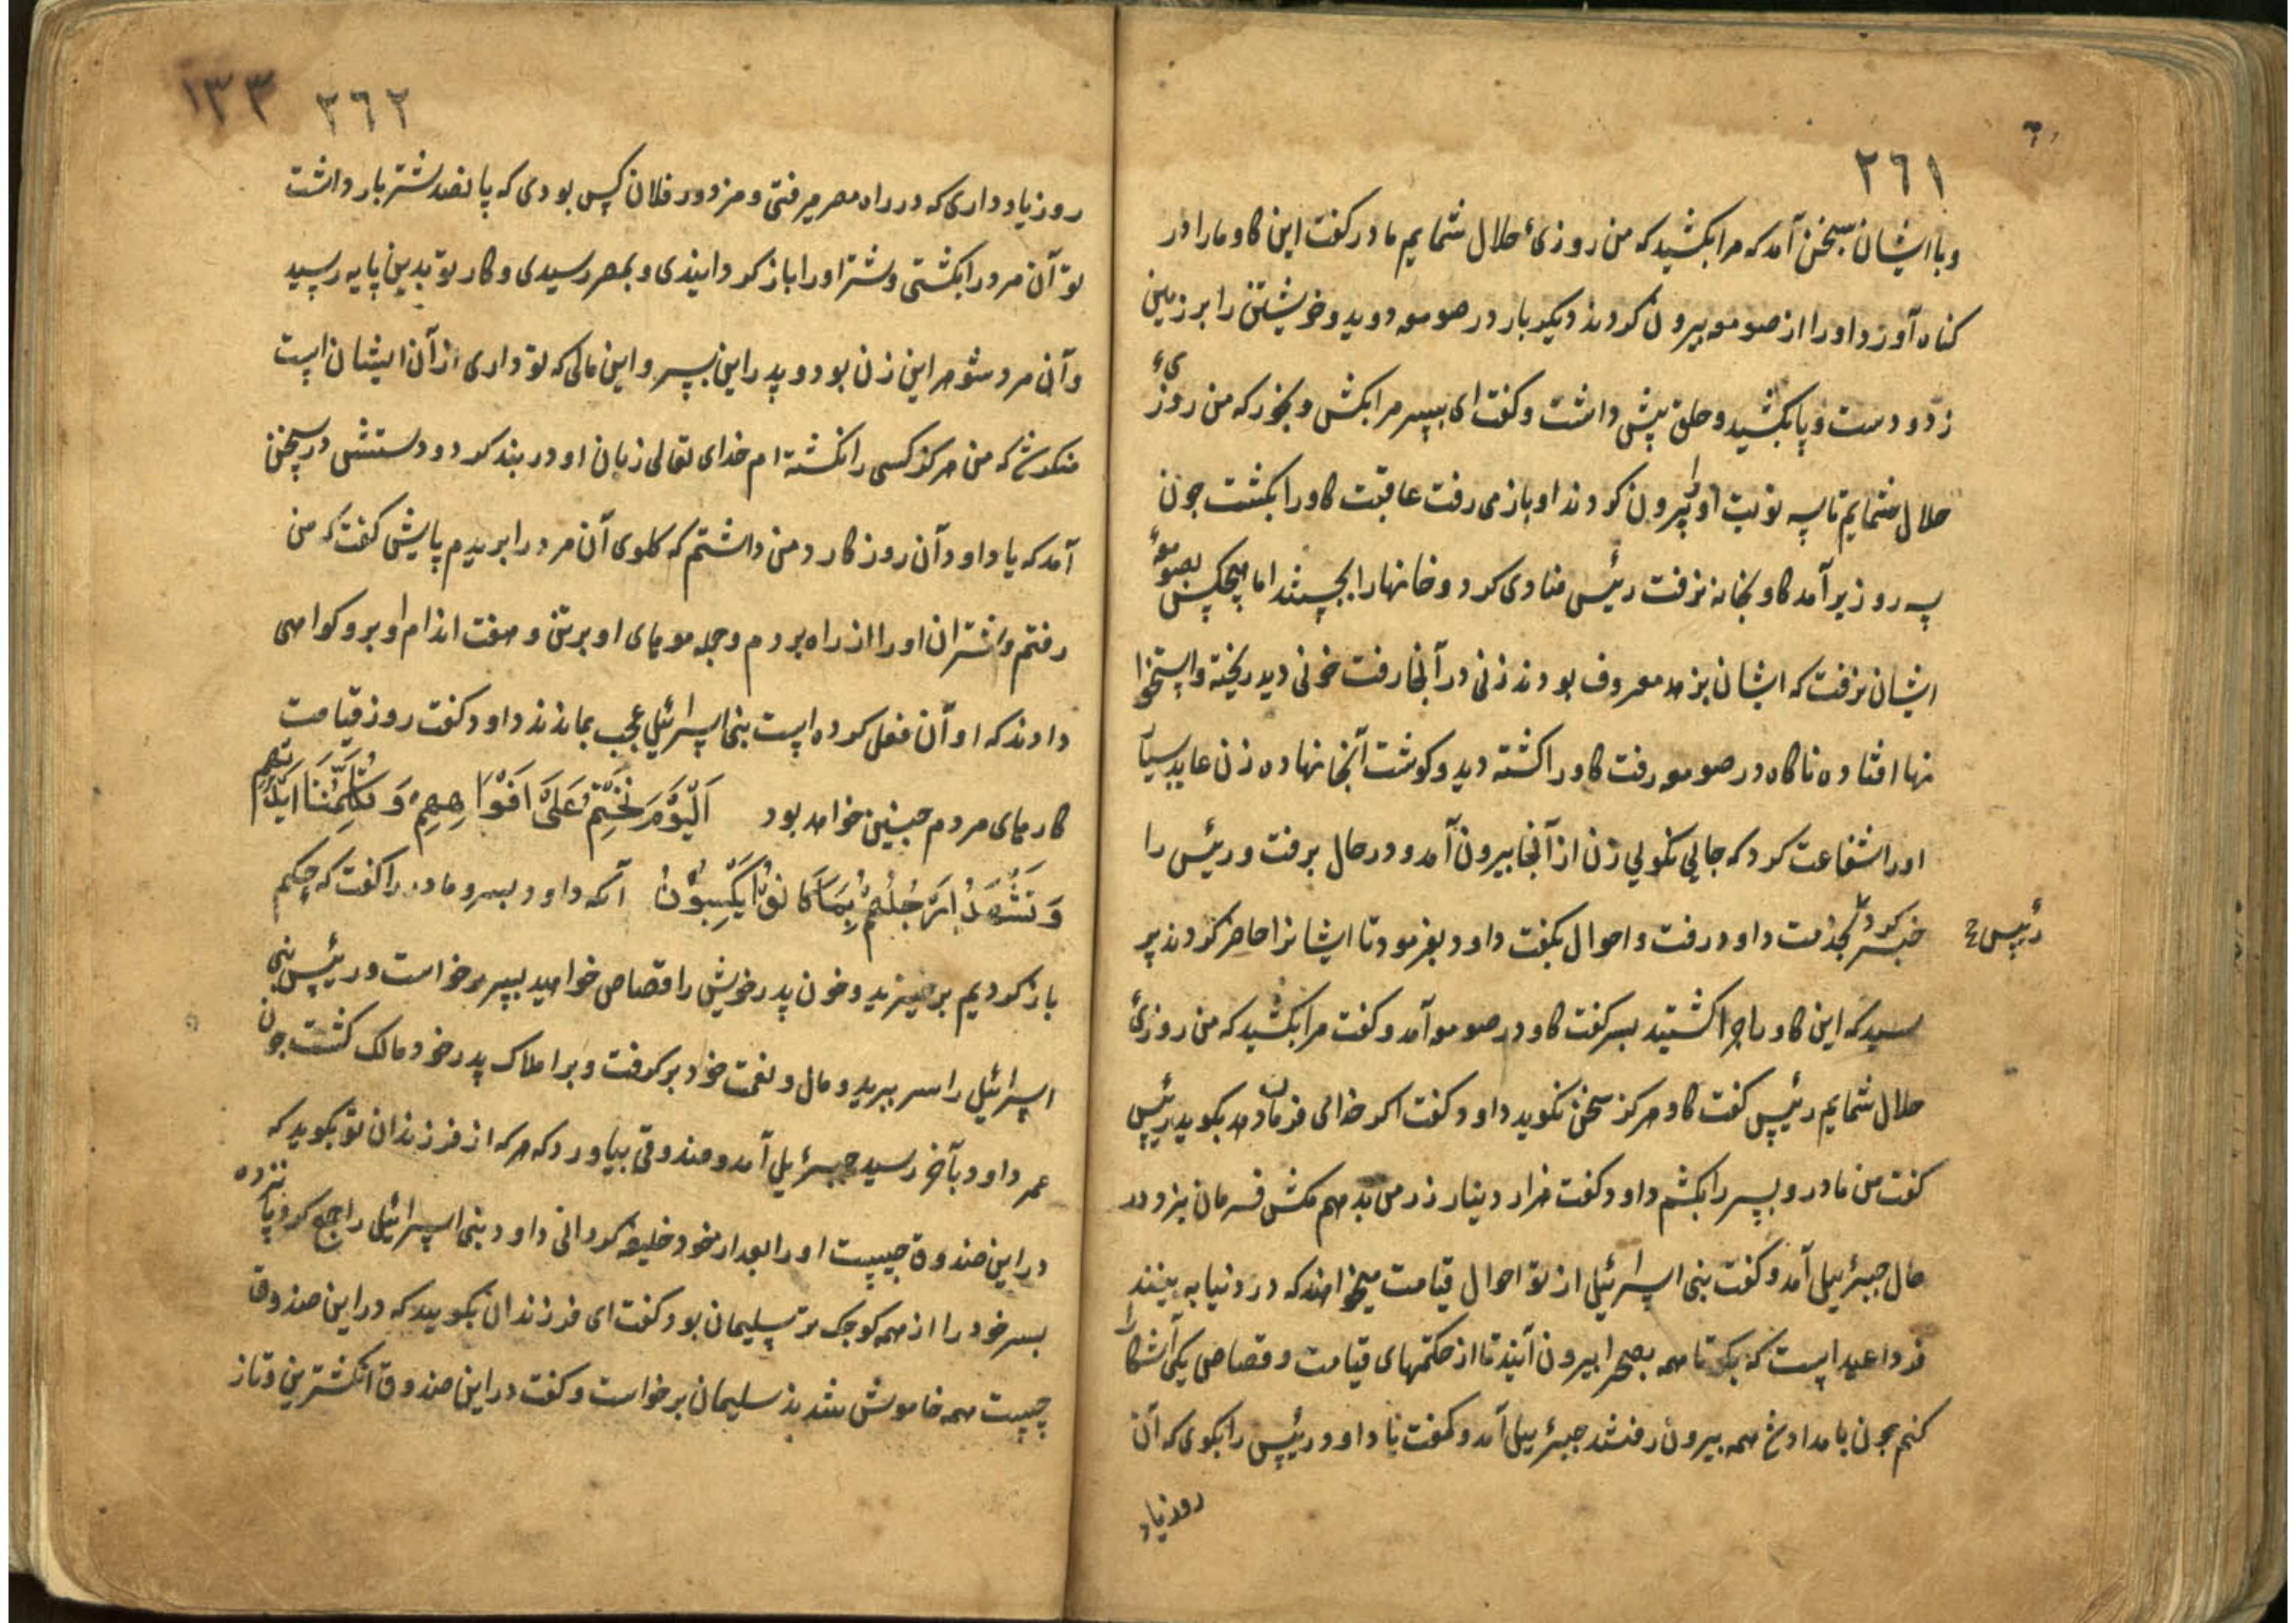 ٢٦١
و با ایشان بسخن آمد که مرا بکشید که من روزیٔ حلال شمایم مادر کفت این کاو ما را در
کناه آورد او را از صومعه بیرون کردند دیکر بار در صومعه دوید و خویشتن را بر زمین
زد و دست و پا بکشید و حلق پیش داشت و کفت ای پسر مرا بکش و بخور که من روزیٔ
حلال شمایم تا سه نوبت او را بیرون کردند او باز می رفت عاقبت کاو را بکشت چون
سه روز بر آمد کاو بخانه نرفت رئیس منادی کرد و خانها را بجستند اما هیچکس بصومعهٔ
ایشان نرفت که ایشان بزهد معروف بودند زنی در آنجا رفت خونی دید ریخته و استخوا
نها افتاده ناکاه در صومعه رفت کاو را کشته دید و کوشت آنجا نهاده زن عابد بسیار
او را شفاعت کرد که جایی نکویی زن از آنجا بیرون آمد و در حال برفت و رئیس را
خبر کرد بخدمت داود رفت و احوال بکفت داود بفرمود تا ایشانرا حاضر کردند پر
رئیس
سید که این کاو را چرا کشتید پسر کفت کاو در صومعه آمد و کفت مرا بکشید که من روزیٔ
حلال شمایم رئیس کفت کاو هرکز سخن نکوید داود کفت اکر خدای فرمان دهد بکوید رئیس
کفت من مادر و پسر را بکشم داود کفت هزار دینار زر من بدهم مکش فرمان نبرد در
حال جبرئیل آمد و کفت بنی اسرائیل از تو احوال قیامت میخواهند که در دنیا به بینند
فردا عید است که بکو تا همه بصحرا بیرون آیند تا از حکمهای قیامت و قصاص یکی آشکارا
کنم چون بامداد همه بیرون رفتند جبرئیل آمد و کفت یا داود رئیس را بکوی که آن
روز یاد
١٣٣ ٢٦٢
روز یاد داری که در راه مصر میرفتی و مزدور فلان کس بودی که پانصد شتر بار داشت
تو آن مرد را بکشتی و شتر او را باز کردانیدی و بمصر رسیدی و کار تو بدین پایه رسید
و آن مرد شوهر این زن بود و پدر این پسر و این مالی که تو داری از آن ایشان است
منکر شد که من هرکز کسی را نکشته ام خدای تعالی زبان او در بند کرد و دستش در سخن
آمد که یا داود آن روز کارد من داشتم که کلوی آن مرد را بریدم پایش کفت که من
رفتم و شتران او را از راه بردم و جمله مویهای او بر تن و هفت اندام او برو کواهی
دادند که او آن فعل کرده است بنی اسرائیل عجب بماندند داود کفت روز قیامت
کارهای مردم چنین خواهد بود اَلْیَوْمَ نَخْتِمُ عَلَی اَفْوَاهِهِمْ وَ تُکَلِّمُنَا اَیْدِیهِمْ
وَ تَشْهَدُ اَرْجُلُهُمْ بِمَا کَانُوا یَکْسِبُونَ آنکه داود پسر و مادر را کفت که حکم
باز کردیم برخیزید و خون پدر خویش را قصاص خواهید پسر برخواست و رئیس بنی
اسرائیل را سر ببرید و مال و نعمت خود برکرفت و بر املاک پدر خود مالک کشت چون
عمر داود بآخر رسید جبرئیل آمد و صندوقی بیاورد که هر که از فرزندان تو بکوید که
در این صندوق چیست او را بعد از خود خلیفه کردانی داود بنی اسرائیل را جمع کرد پانزده
پسر خود را از همه کوچک تر سلیمان بود کفت ای فرزندان بکویید که در این صندوق
چیست همه خاموش شدند سلیمان برخواست و کفت در این صندوق انکشترین و تاز